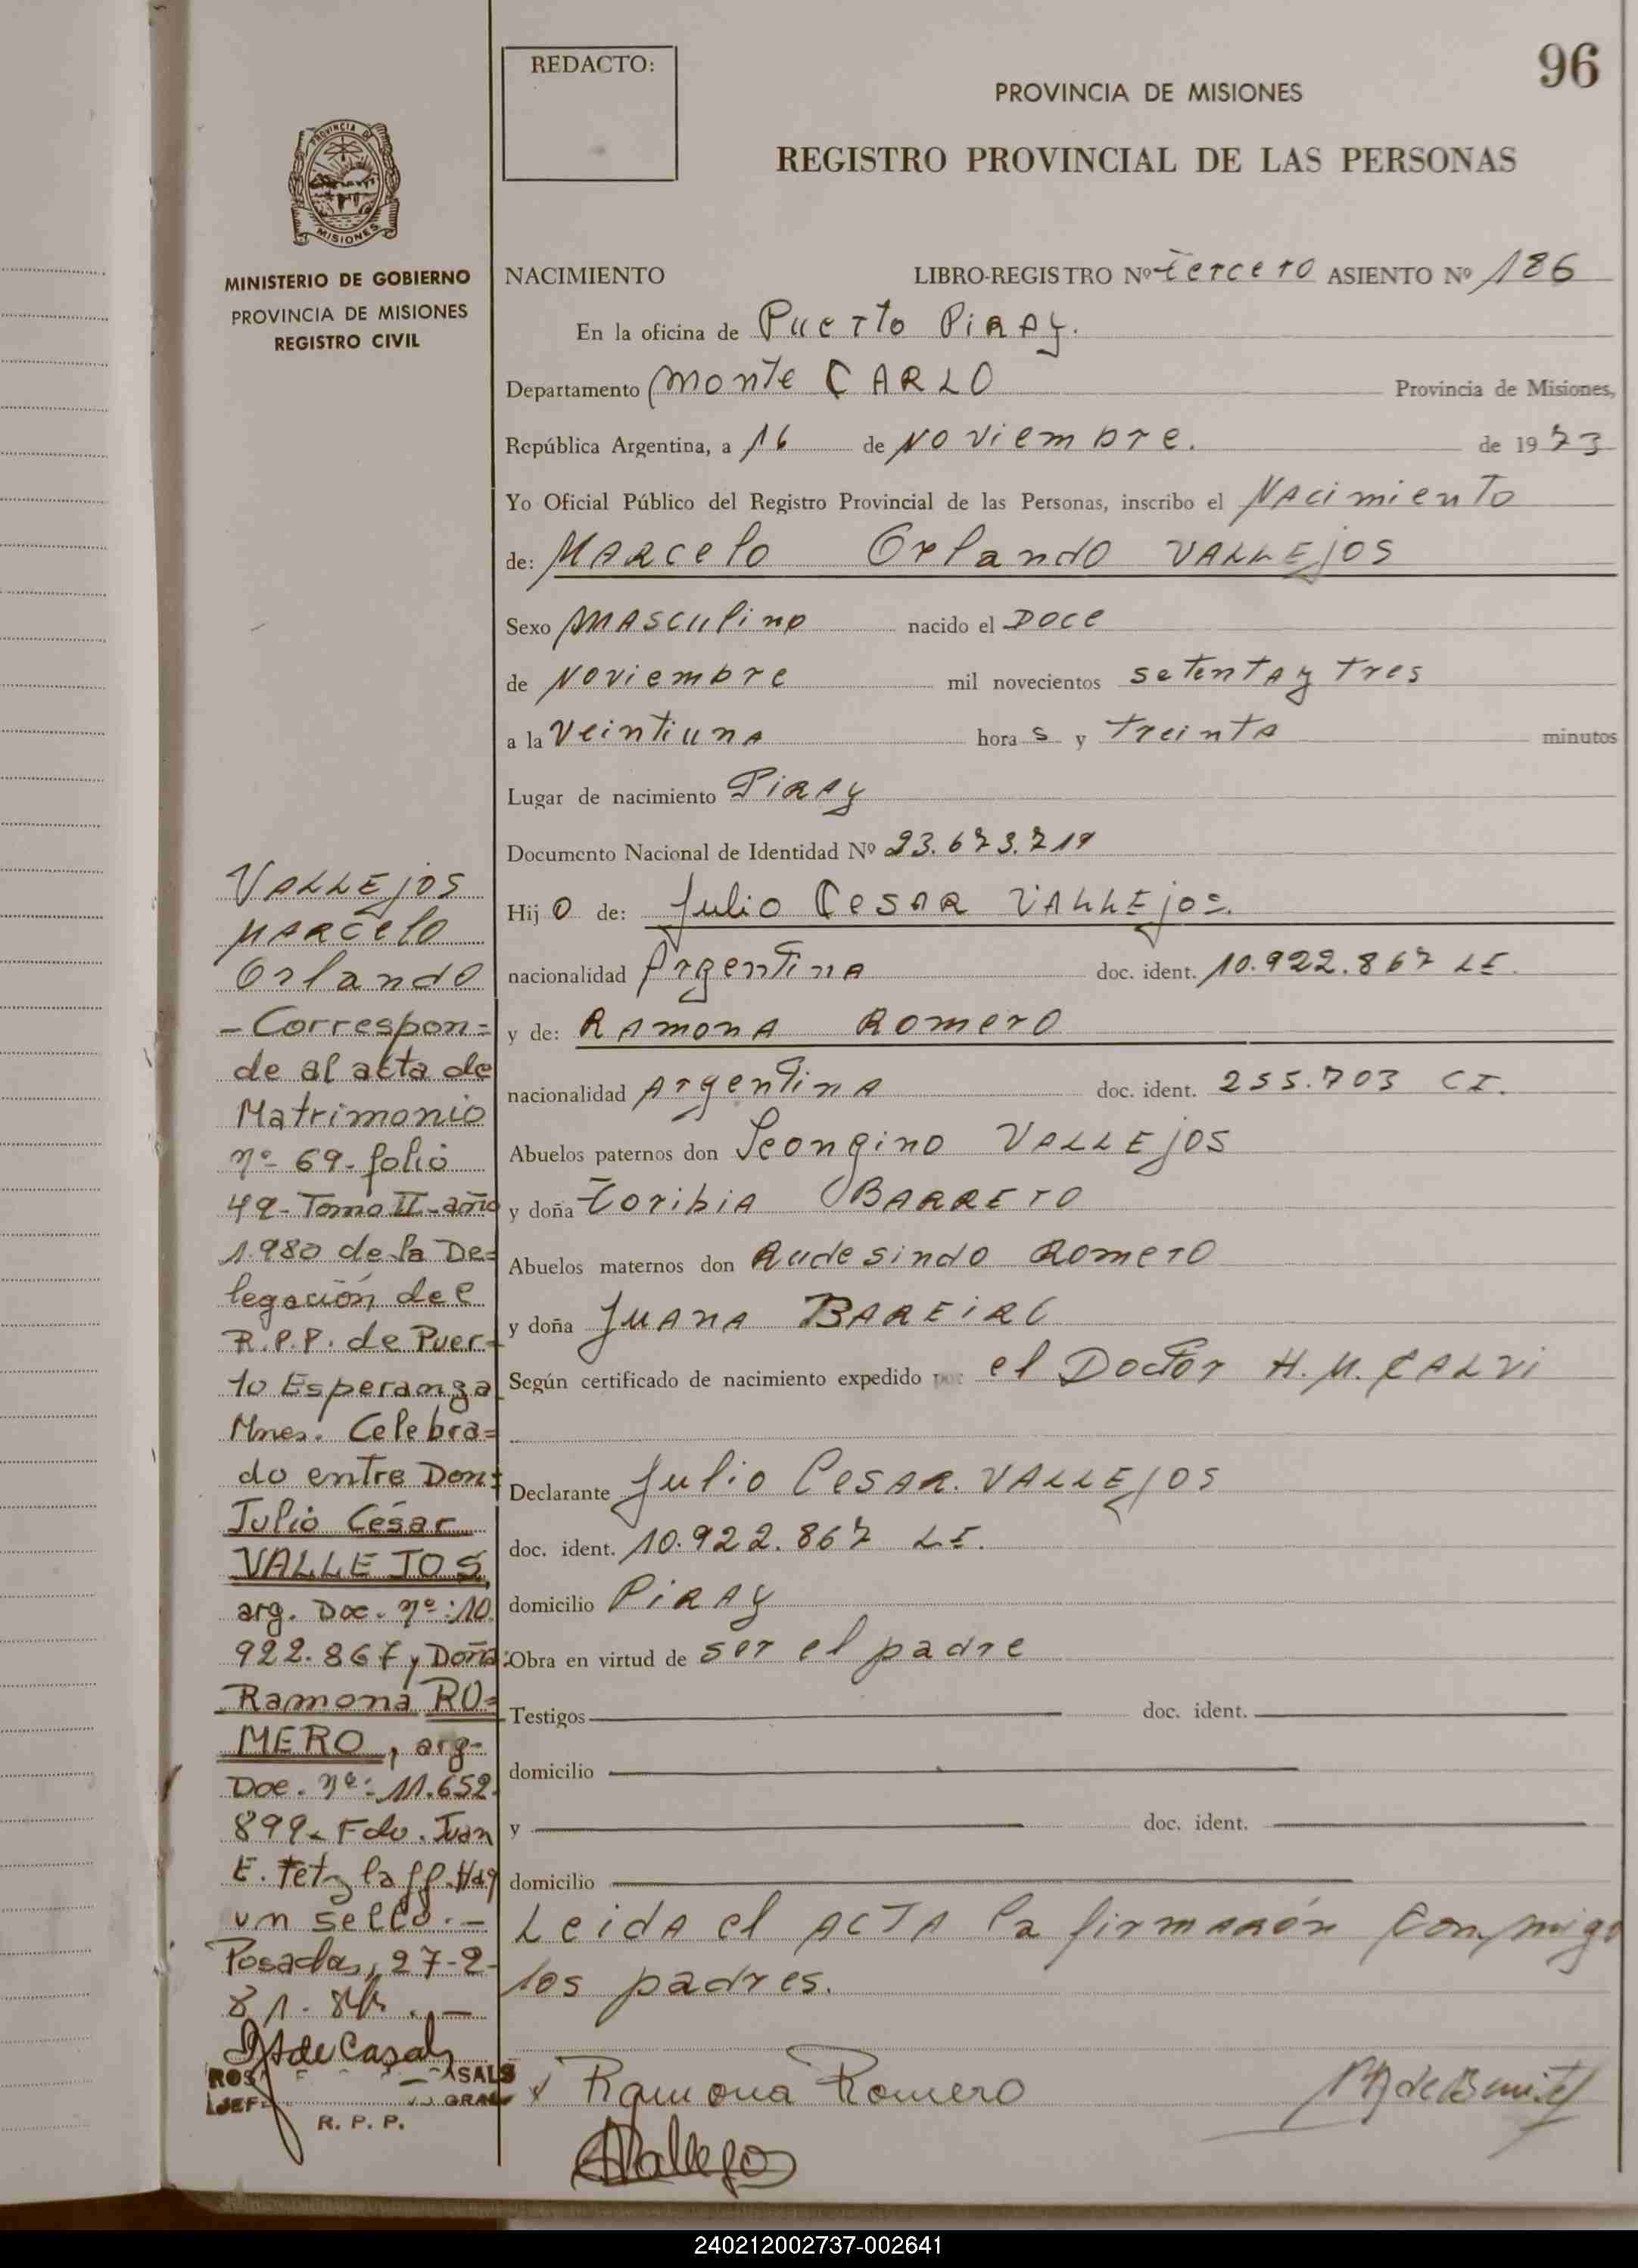 96
REDACTO:
PROVINCIA DE MISIONES
REGISTRO PROVINCIAL DE LAS PERSONAS
PROVINCIA DE
MISIONES
MINISTERIO DE GOBIERNO
PROVINCIA DE MISIONES
REGISTRO CIVIL
NACIMIENTO LIBRO-REGISTRO Nº tercero ASIENTO Nº 186
En la oficina de Puerto PiRAy.
Departamento Monte CARLO Provincia de Misiones,
República Argentina, a 16 de Noviembre. de 1973
Yo Oficial Público del Registro Provincial de las Personas, inscribo el NAcimiento
de: MARcelo Orlando VALLEjOS
Sexo MASculino nacido el Doce
de Noviembre mil novecientos setentA y tres
a la VeintiunA hora s y treintA minutos
Lugar de nacimiento PiRAy
Documento Nacional de Identidad Nº 23.673.719
Hij O de: Julio CeSAR VALLEjos.
nacionalidad ArgentinA doc. ident. 10.922.867 LE.
y de: RAmonA Romero
nacionalidad ArgentinA doc. ident. 255.703 CI.
Abuelos paternos don VALLEjOS
y doña ToribiA BARRETO
Abuelos maternos don Rudesindo Romero
y doña JuAnA BAREiRO
Según certificado de nacimiento expedido por el Doctor H.M. CALVi
Declarante Julio CeSAR. VALLEjOS
doc. ident. 10.922.867 LE.
domicilio PiRAy
Obra en virtud de ser el padre
Testigos doc. ident.
domicilio
y doc. ident.
domicilio
LeidA el ACTA la firmarón conmigo
los padres.
Ramona Romero
Vallejos
VALLEjOS
MARCelo
Orlando
- Correspon=
de al acta de
Matrimonio
nº 69- folio
49- Tomo II- año
1.980 de la De=
legación del
R.P.P. de Puer-
to Esperanza
Mnes. Celebra=
do entre Don:
Julio César
VALLEJOS,
arg. Doc. nº: 10.
922.867 y Doña:
Ramona RO=
MERO, arg-
Doc. nº: 11.652.
899- Fdo. Juan
E. Tetzlaff. Hay
un sello.-
Posadas, 27-2-
81.
de Casals
R. P. P.
240212002737-002641